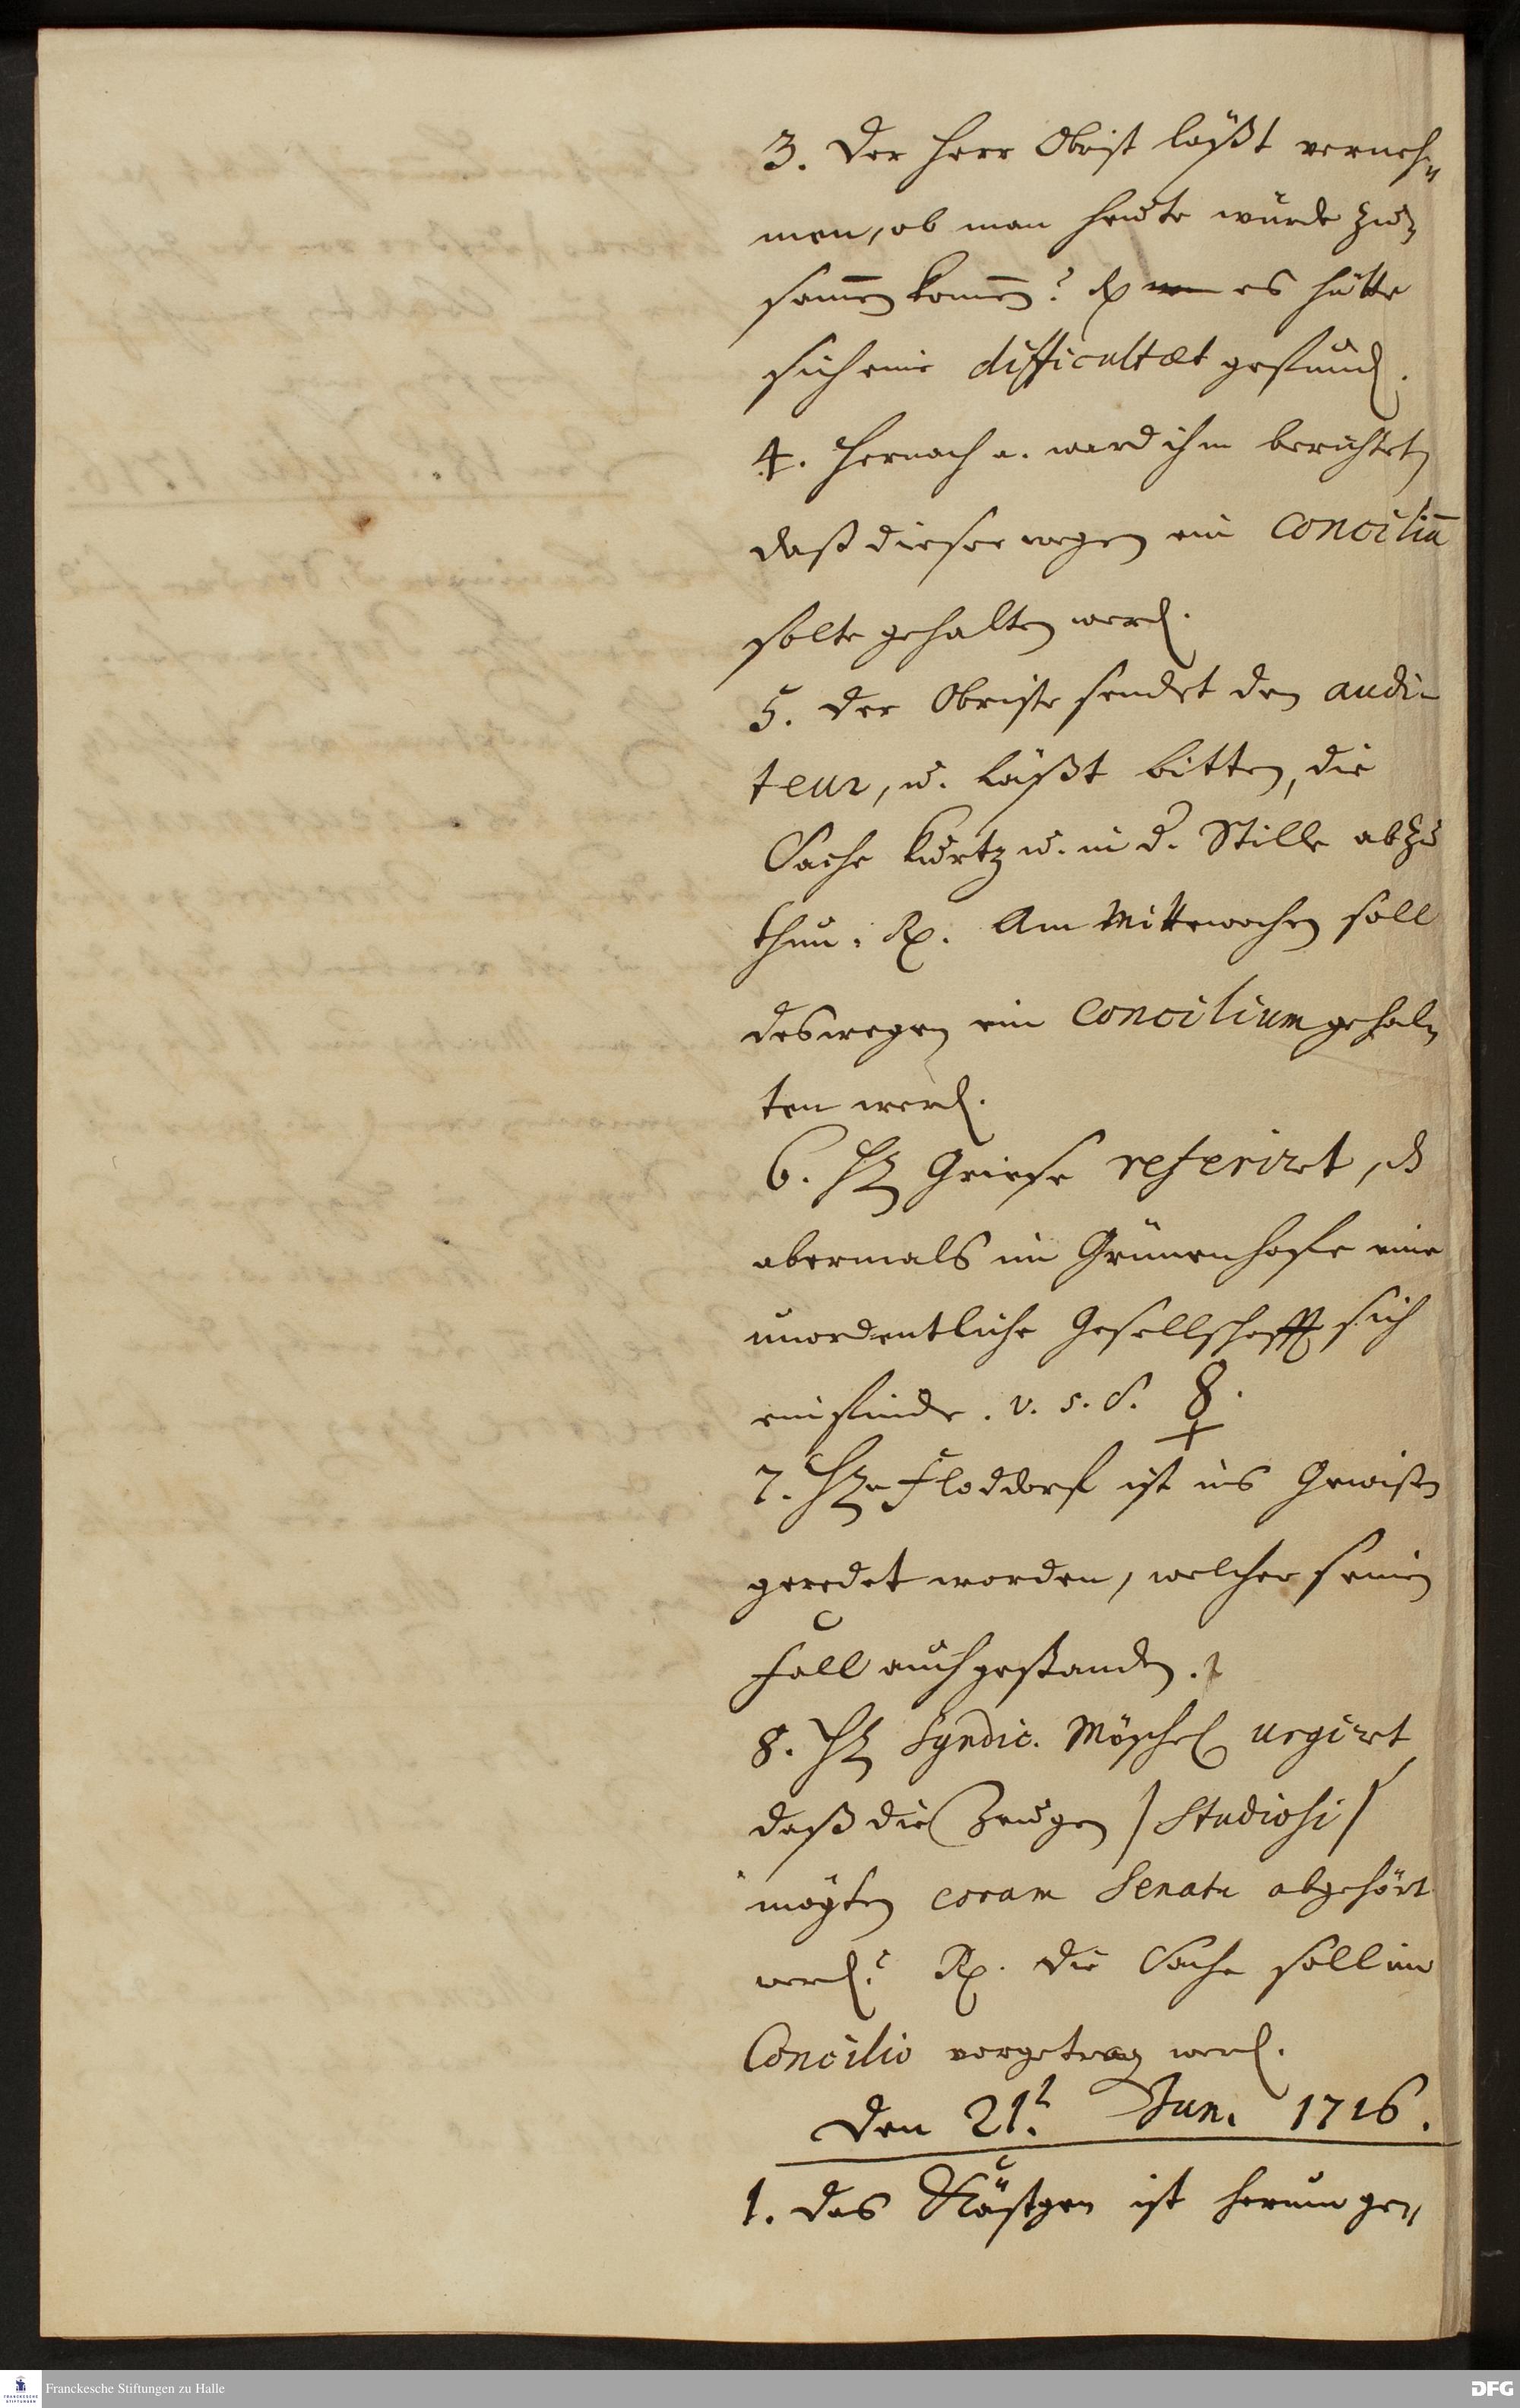 3. Der Herr Obrist läßt verneh-
men, ob man heute würde zu-
sam̄en kom̄en? Rx es hätte
sich eine difficultæt gefund.
4. Hernach a. ward ihm berichtet,
daß dieser wegen ein Conciliū
solte gehalten werd.
5. Der Obriste sendet den audi-
teur, u. läßt bitten, die
Sache kurtz u. in d. Stille abzu
thun. Rx. Am Mittewochen soll
deswegen ein Concilium gehal-
ten werd.
6. H. Griese referirt, dß
abermals im Grünenhofe eine
unordentliche Gesellschafft sich
einfinde. v. s. S. 8.
7. H. Floddorf ist ins Gewißen
geredet worden, welcher seinen
Fall auch gestanden.
8. H. Syndic. Möschel urgirt,
daß die Zeugen / Studiosi /
mögten coram Senatu abgehört
werd? Rx. Die Sache soll im
Concilio vorgetrag werd.
Den 21. Jun. 1716.
1. Das Kästgen ist herum ge-
Franckesche Stiftungen zu Halle
DFG